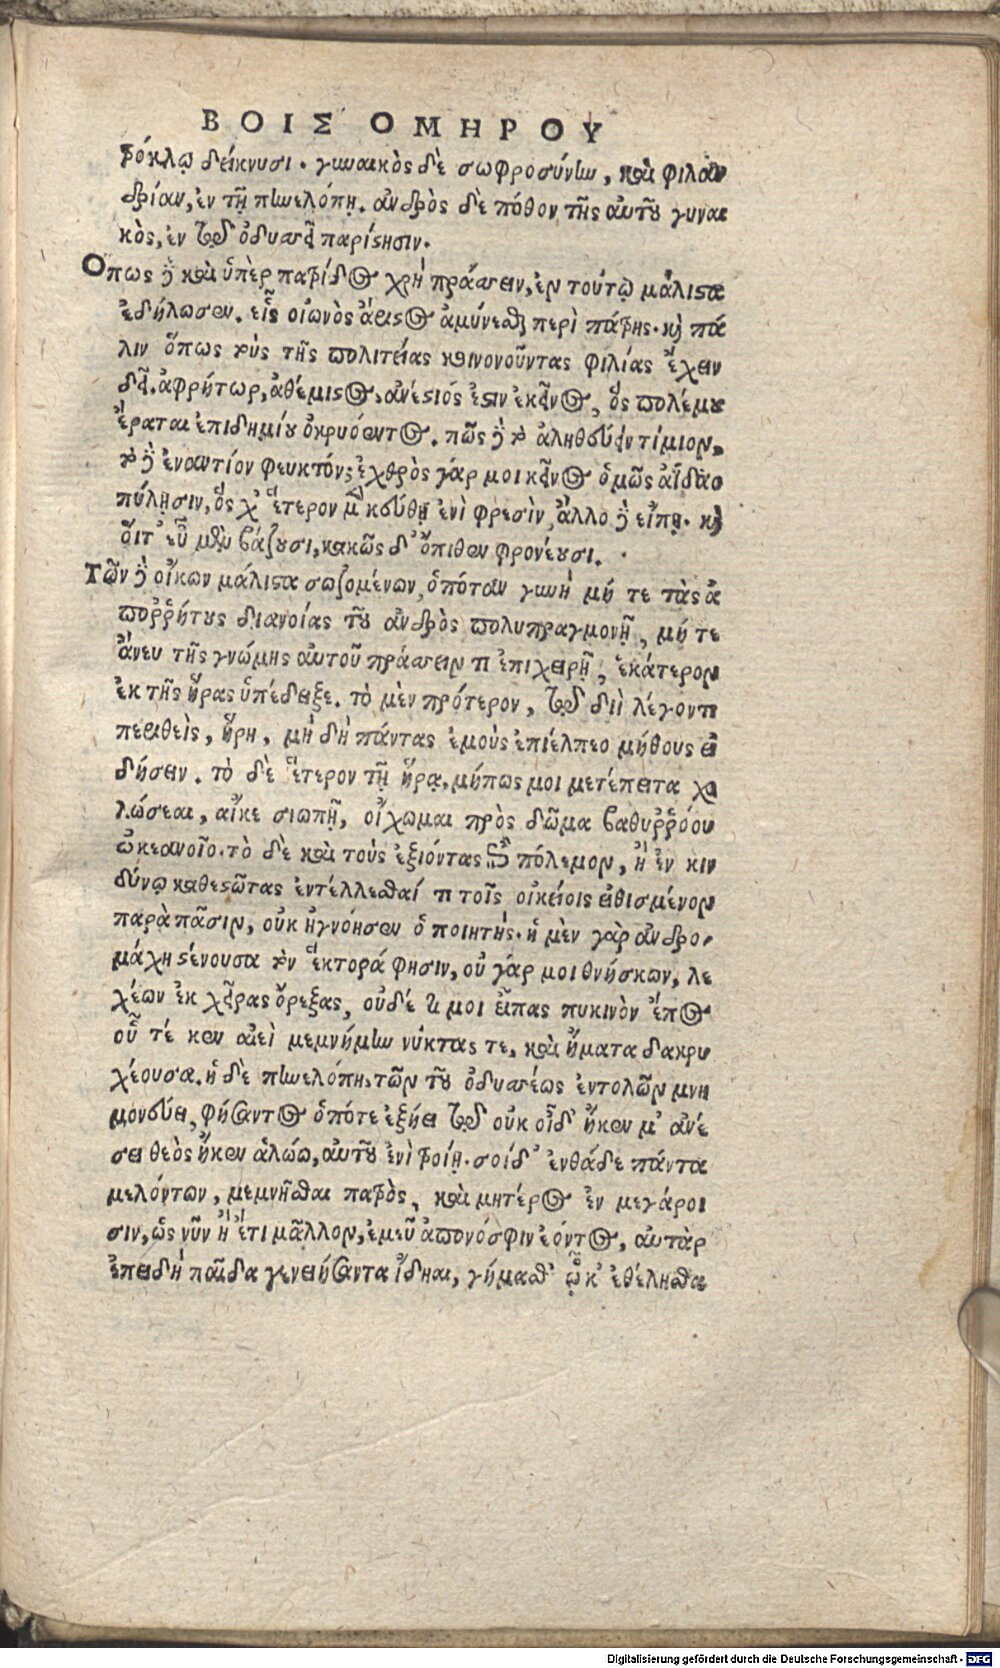 ΒΟΙΣ ΟΜΗΡΟΥ
τρόκλῳ δείκνυσι. γυναικὸς δὲ σωφροσύνην, καὶ φιλαν
δρίαν, ἐν τῇ πηνελόπῃ. ἀνδρὸς δὲ πόθον τῆς αὐτοῦ γυναι
κὸς, ἐν τῷ ὀδυσσεῖ παρίστησιν.
Ὅπως δὲ καὶ ὑπὲρ πατρίδος χρὴ πράττειν, ἐν τούτῳ μάλιστα
ἐδήλωσεν. εἷς οἰωνὸς ἄριστος ἀμύνεσθαι περὶ πάτρης. καὶ πά
λιν ὅπως τοὺς τῆς πολιτείας κοινονοῦντας φιλίας ἔχειν
δεῖ. ἀφρήτωρ, ἀθέμιστος, ἀνέστιός ἐστιν ἐκεῖνος, ὃς πολέμου
ἔραται ἐπιδημίου ὀκρυόεντος. πῶς δὲ τὸ ἀληθεύειν τίμιον,
τὸ δὲ ἐναντίον φευκτόν; ἐχθρὸς γάρ μοι κεῖνος ὁμῶς ἀΐδαο
πύλῃσιν, ὅς χ' ἕτερον μὲν κεύθῃ ἐνὶ φρεσὶν, ἄλλο δὲ εἴπῃ. καὶ
οἵτ' εὖ μὲν βάζουσι, κακῶς δ' ὄπιθεν φρονέουσι.
Τῶν δὲ οἴκων μάλιστα σωζομένων, ὁπόταν γυνὴ μή τε τὰς ἀ
πορρήτους διανοίας τοῦ ἀνδρὸς πολυπραγμονῇ, μή τε
ἄνευ τῆς γνώμης αὐτοῦ πράττειν τι ἐπιχειρῇ, ἑκάτερον
ἐκ τῆς ἥρας ὑπέδειξε. τὸ μὲν πρότερον, τῷ διῒ λέγοντι
πειθεὶς, ἥρη, μὴ δὴ πάντας ἐμοὺς ἐπιέλπεο μήθους εἰ
δήσειν. τὸ δὲ ἕτερον τῇ ἥρᾳ, μήπως μοι μετέπειτα χο
λώσεαι, αἴκε σιωπῇ, οἴχωμαι πρὸς δῶμα βαθυῤῥόου
ὠκεανοῖο. τὸ δὲ καὶ τοὺς ἐξιόντας ἐπὶ πόλεμον, ἢ ἐν κιν
δύνῳ καθεστῶτας ἐντέλλεσθαί τι τοῖς οἰκείοις εἰθισμένον
παρὰ πᾶσιν, οὐκ ἠγνόησεν ὁ ποιητής. ἡ μὲν γὰρ ἀνδρο-
μάχη στένουσα τὸν ἕκτορά φησιν, οὐ γάρ μοι θνήσκων, λε
χέων ἐκ χεῖρας ὄρεξας, οὐδέ τι μοι εἶπας πυκινὸν ἔπος
οὗ τέ κεν αἰεὶ μεμνήμην νύκτας τε, καὶ ἤματα δακρυ
χέουσα. ἡ δὲ πηνελόπη, τῶν τοῦ ὀδυσσέως ἐντολῶν μνη
μονεύει, φήσαντος ὁπότε ἐξῄει τῷ οὐκ οἶδ' ἤκεν μ' ἀνέ
σει θεὸς ἤκεν ἁλώω, αὐτοῦ ἐνὶ τροίῃ. σοὶ δ' ἐνθάδε πάντα
μελόντων, μεμνῆσθαι πατρὸς, καὶ μητέρος ἐν μεγάροι
σιν, ὡς νῦν ἢ ἔτι μᾶλλον, ἐμεῦ ἀπονόσφιν ἐόντος, αὐτὰρ
ἐπειδὴ παῖδα γενειήσαντα ἴδηαι, γήμασθ' ᾧ κ' ἐθέλησθα
Digitalisierung gefördert durch die Deutsche Forschungsgemeinschaft - DFG